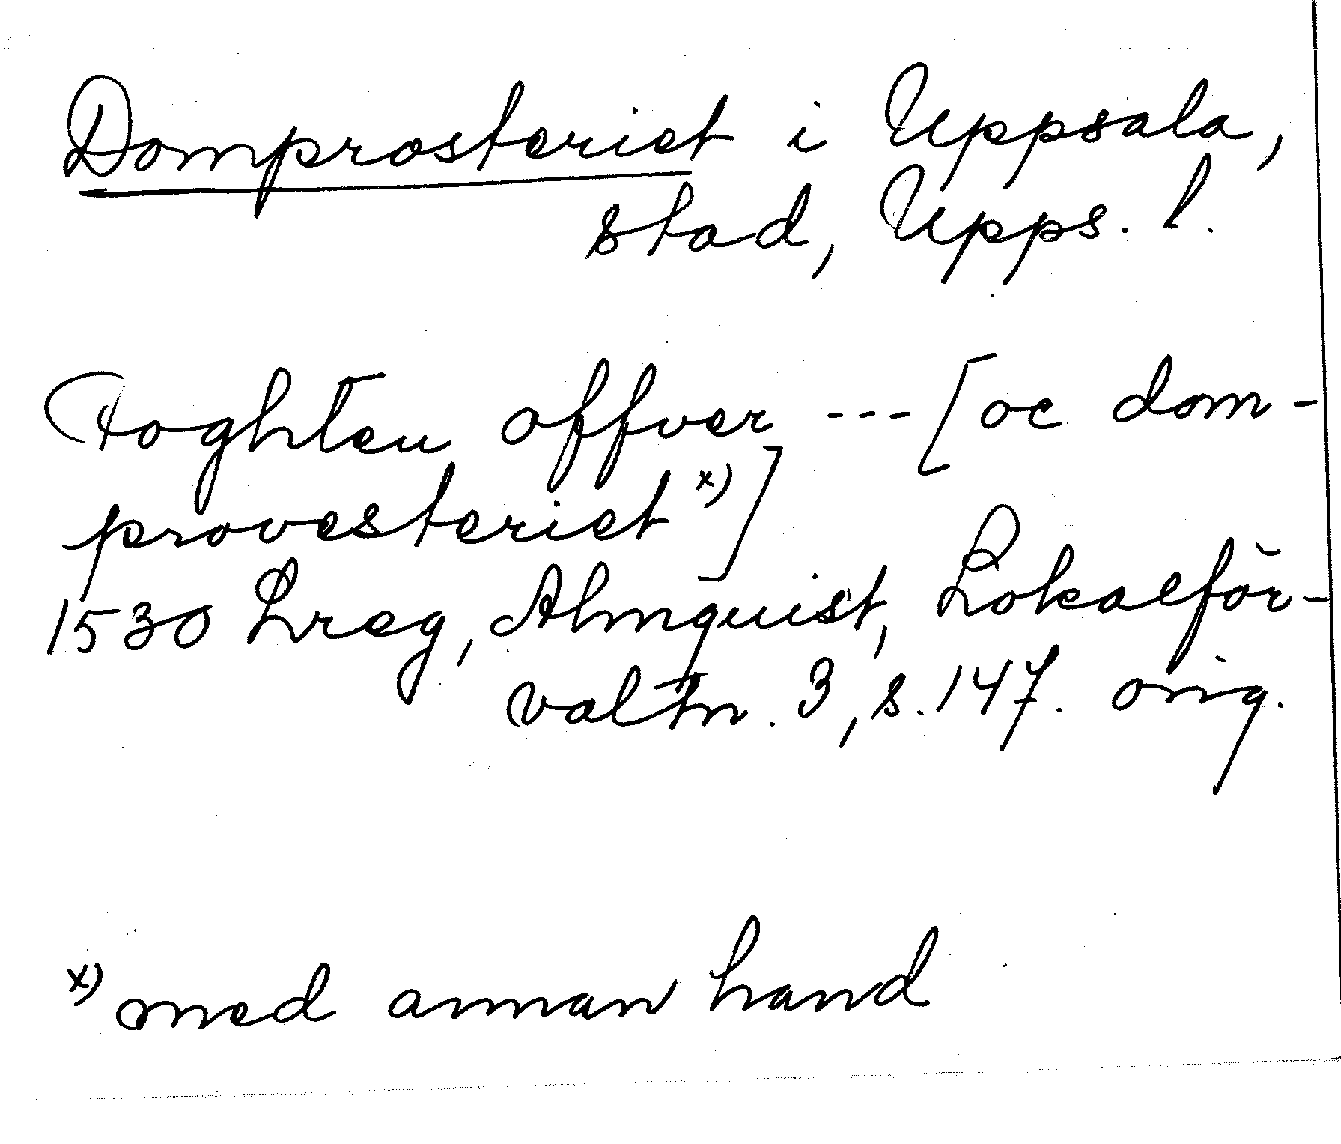 Domprosteriet i Uppsala,
stad, Upps. l.
Foghten offver --- [oc dom-
provesteriet x)]
1530 Lreg, Almquist, Lokalför-
valtn. 3, s. 147. orig.
x) med annan hand